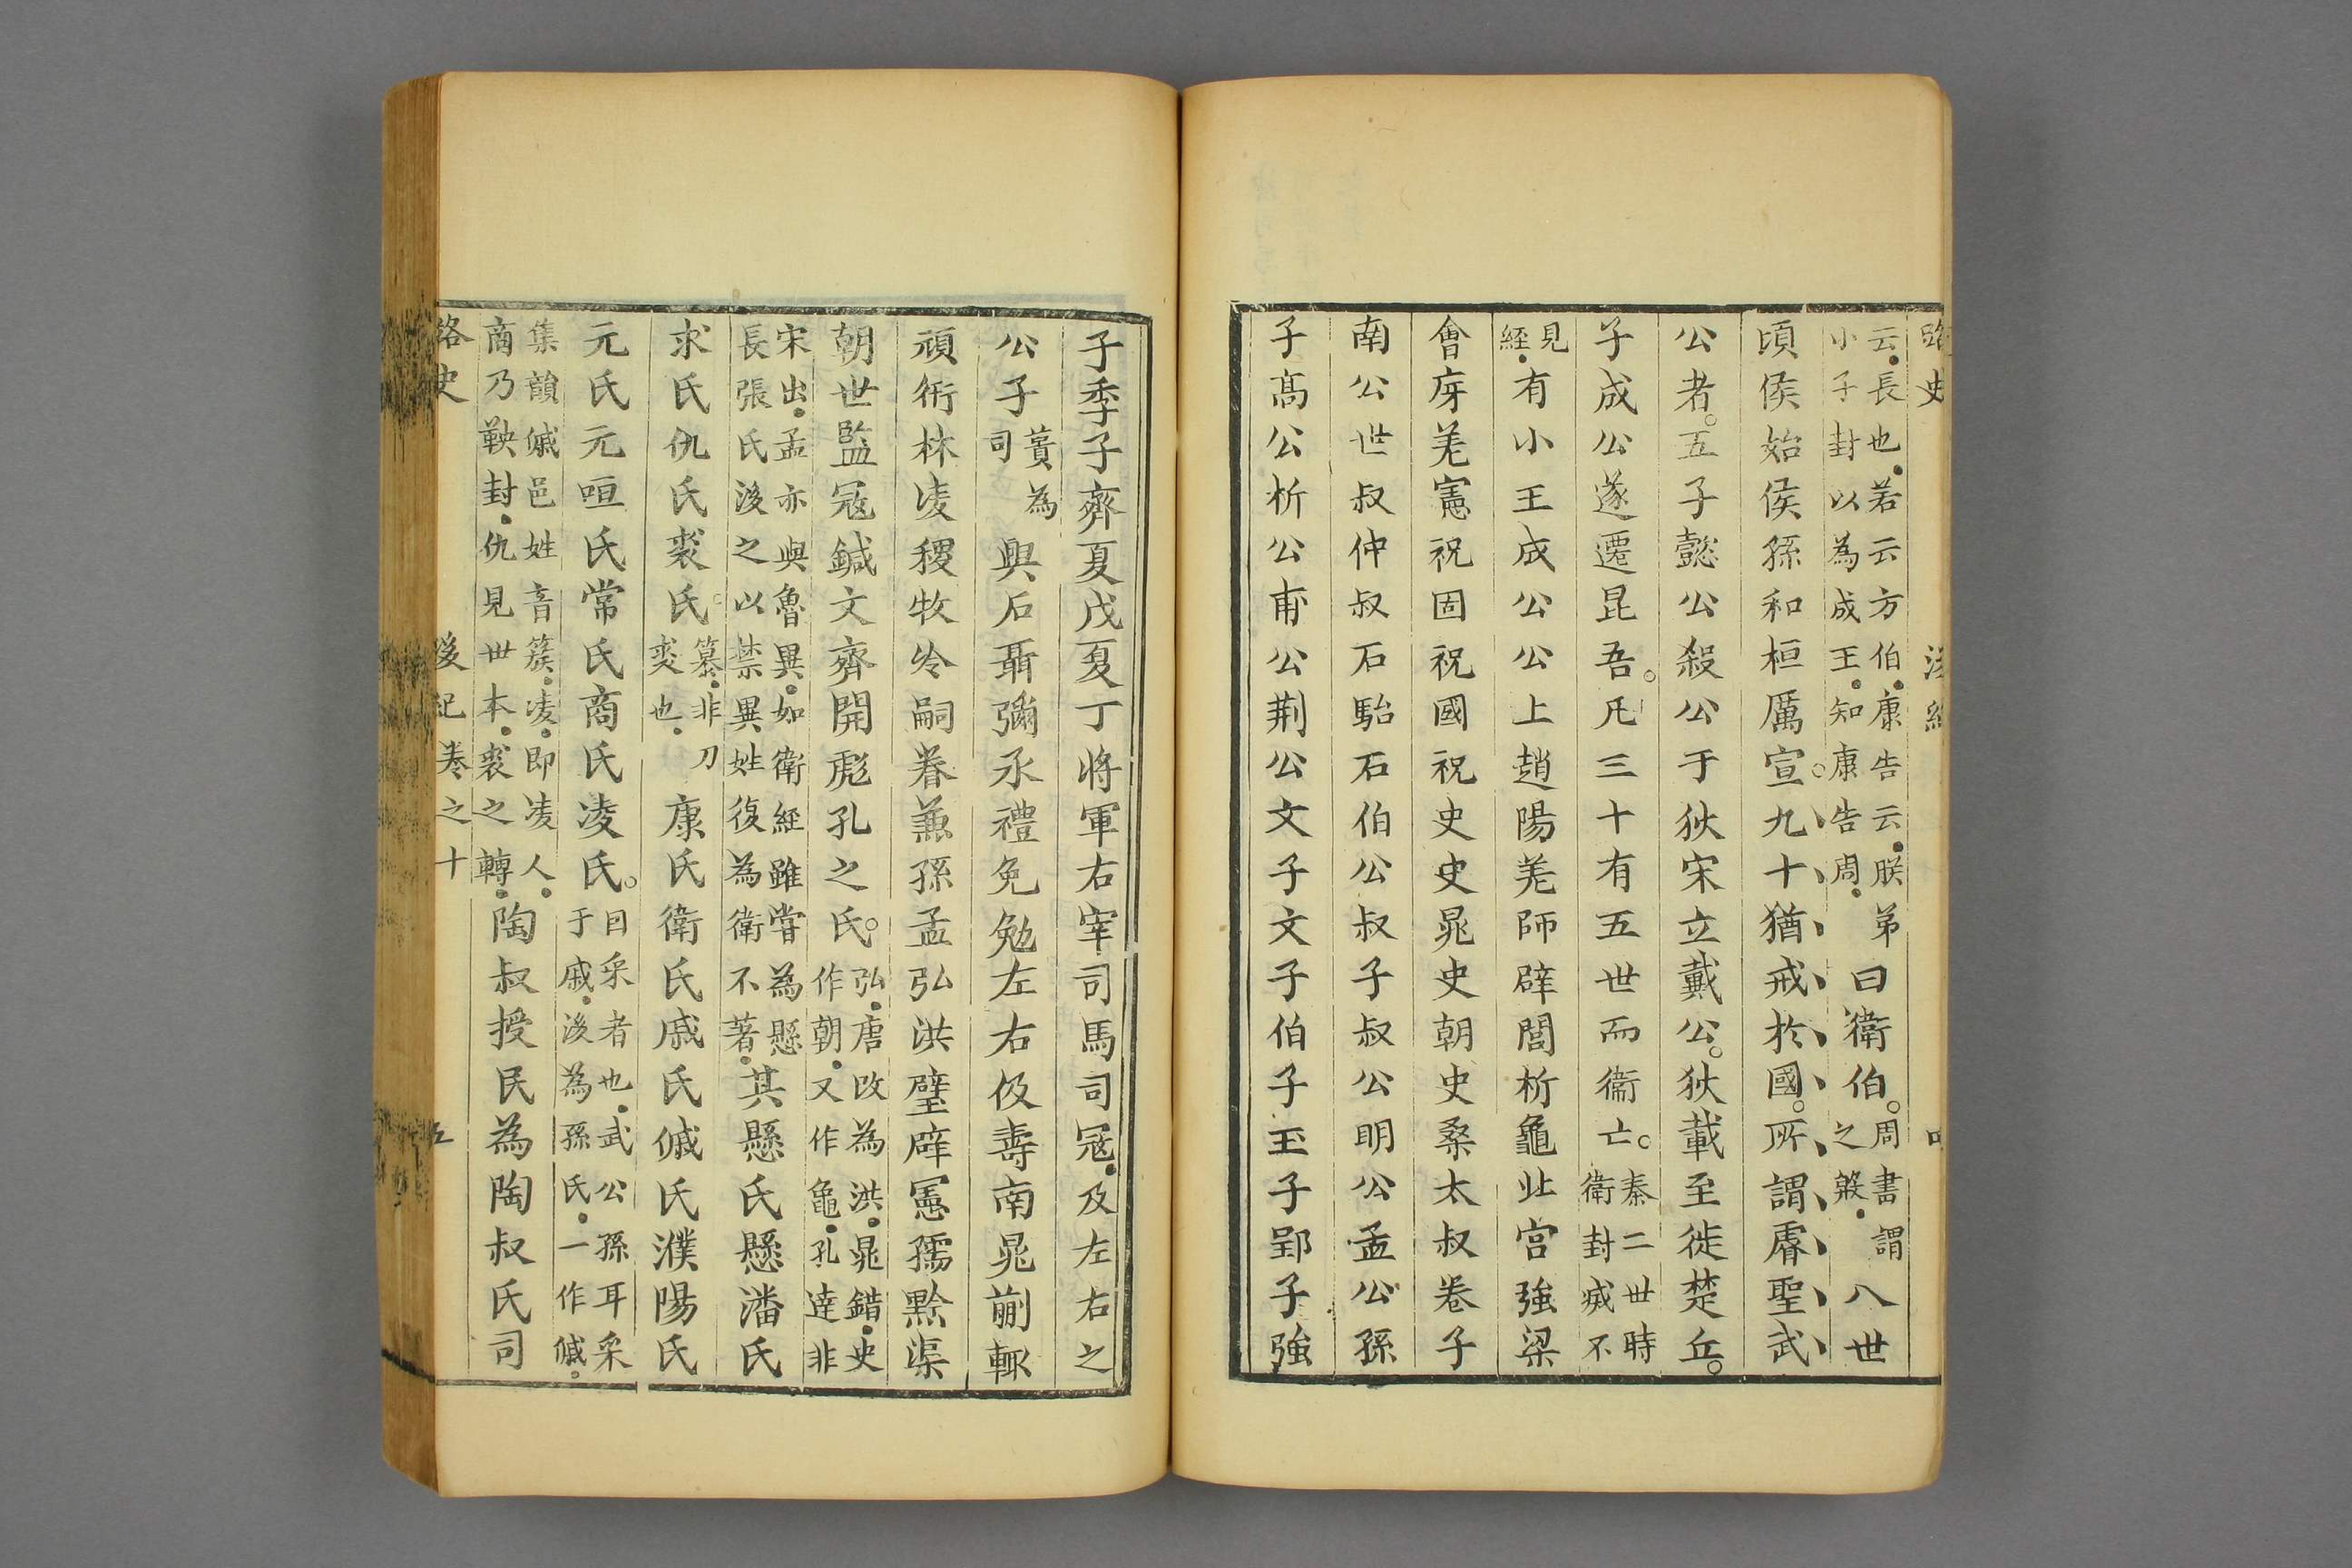 路史
云長也若云方伯康告云朕弟
小子封以為成王知康告周
曰衛伯周書謂之䈊八世
頃侯始侯孫和桓厲宣九十猶戒於國所謂睿聖武
公者五子懿公殺公于狄宋立戴公狄載至徙楚丘
子成公遂遷昆吾凡三十有五世而衞亡秦二世時衛封烕不
見經有小王成公公上趙陽羌師辟閭析龜北宫強梁
會庌羌憲祝固祝國祝史史晁史朝史桑太叔卷子
南公世叔仲叔石駘石伯公叔子叔公明公孟公孫
子髙公析公甫公荆公文子文子伯子玉子郢子強
子季子齊夏戊夏丁將軍右宰司馬司寇及左右之
公子蕢為司與后聶彌永禮免勉左右伋壽南晁蒯輒
頑衎林凌稷牧泠嗣眷兼孫孟弘洪璧辟憲孺黔渠
朝世監冦鍼文齊開彪孔之氏弘唐改為洪晁錯史作朝又作龜孔達非
宋出孟亦與魯異如衛經雖嘗為懸
長張氏後之以禁異姓復為衛不著
其懸氏懸潘氏
求氏仇氏裘氏簒非刀奕也康氏衛氏戚氏傶氏濮陽氏
元氏元咺氏常氏商氏凌氏曰采者也武公孫耳采于戚後為孫氏一作傶
集韻傶邑姓音簇凌即凌人
商乃鞅封仇見世本裘之轉
陶叔授民為陶叔氏司
路史 後紀卷之十 五